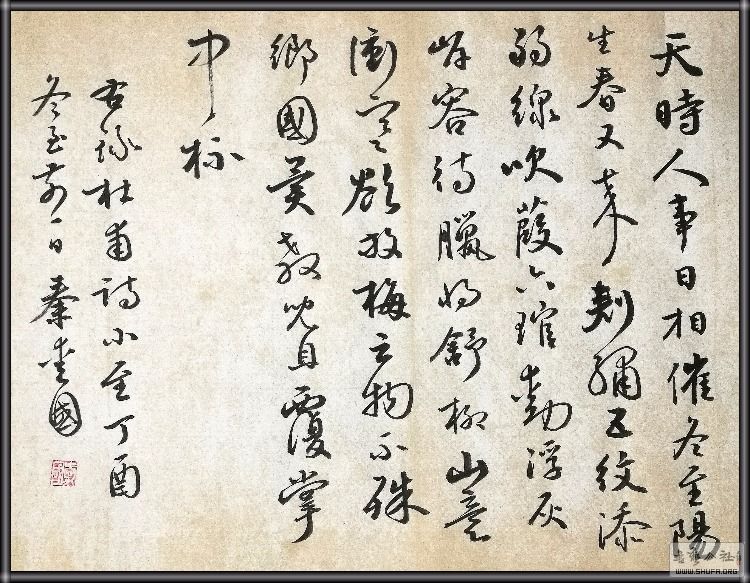 天時人事日相催冬至陽
生春又来刺繡五紋添
弱線吹葭六琯動浮灰
岸容待臘将舒柳山意
衝寒欲放梅云物不殊
鄉國異教兒且覆掌
中杯
右錄杜甫詩小至丁酉
冬至前一日秦愛國
WWW.SHUFA.ORG